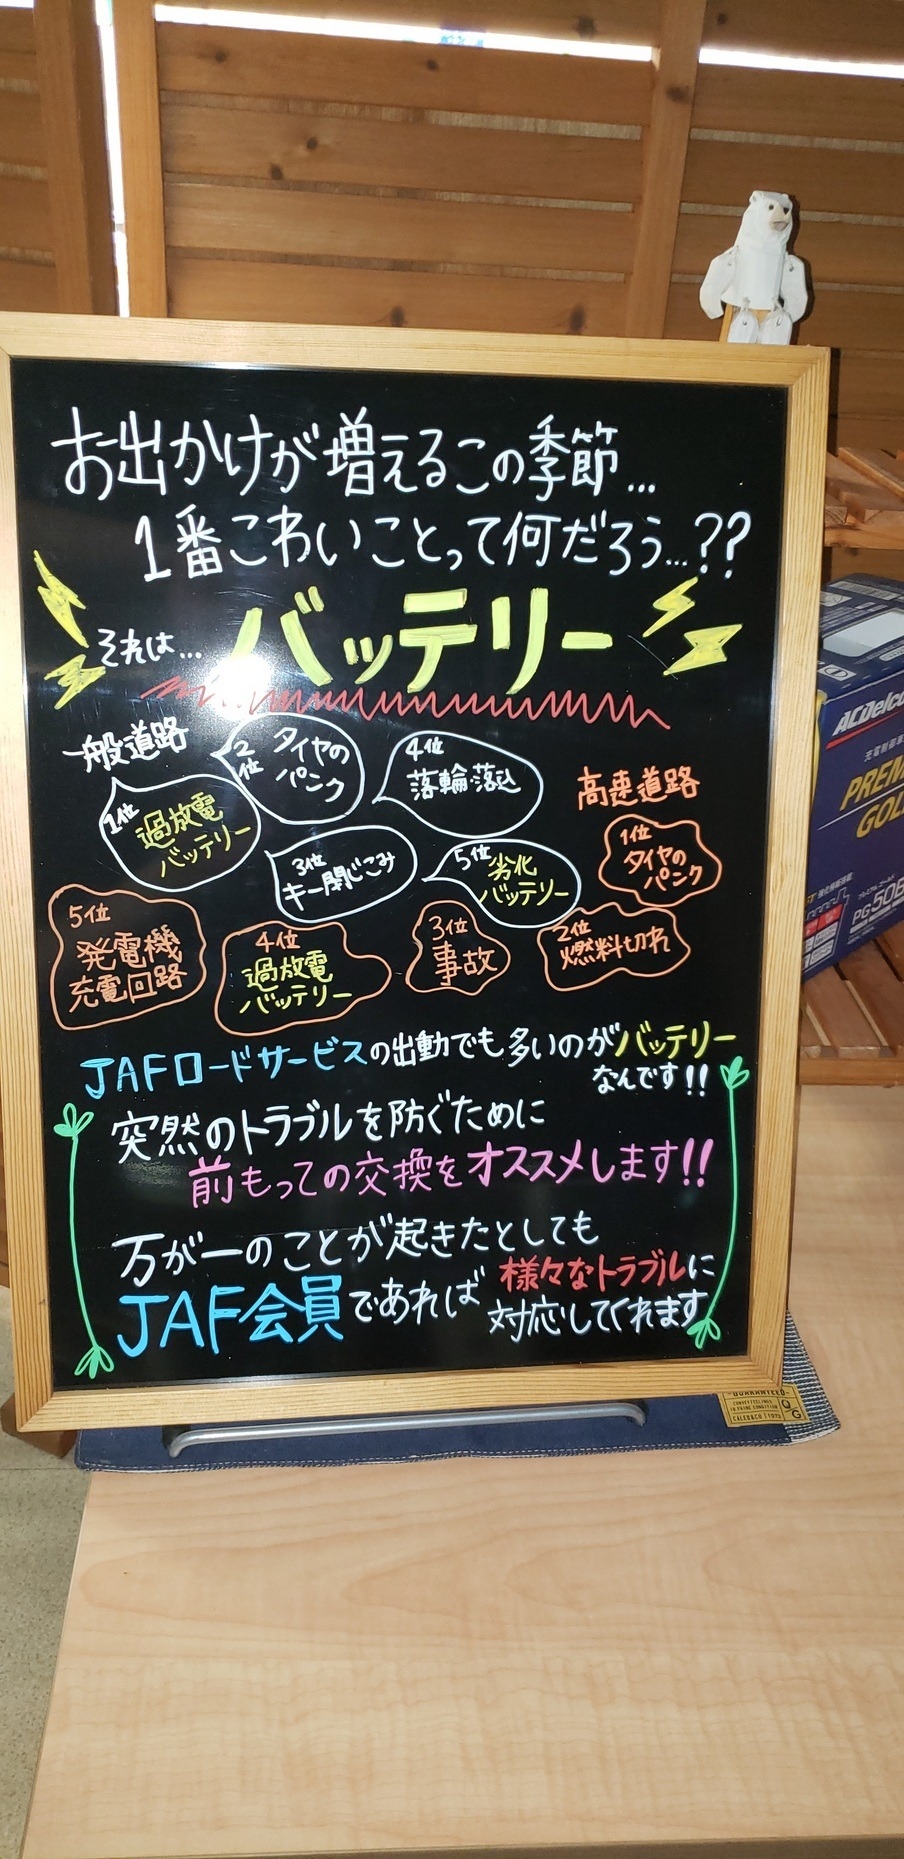 お出かけが増えるこの季節…
1番こわいことって何だろう…??
それは… バッテリー
一般道路
1位
過放電
バッテリー
2位
タイヤの
パンク
3位
キー閉じこみ
4位
落輪・落込
5位
劣化
バッテリー
高速道路
1位
タイヤの
パンク
2位
燃料切れ
3位
事故
4位
過放電
バッテリー
5位
発電機
充電回路
JAFロードサービスの出動でも多いのがバッテリー
なんです!!
突然のトラブルを防ぐために
前もっての交換をオススメします!!
万が一のことが起きたとしても
JAF会員であれば 様々なトラブルに
対応してくれます
ACDelco
充電制御車
PREM
GOL
プレミアム ゴールド
PG50B
-GUARANTEED-